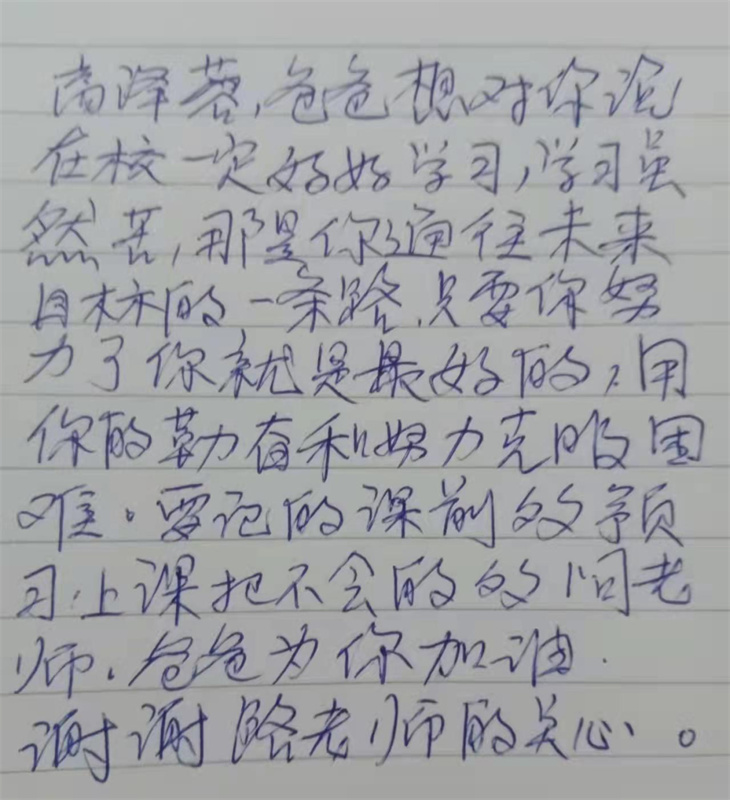 尚泽蓉,爸爸想对你说
在校一定好好学习,学习虽
然苦,那是你通往未来
目标的一条路.只要你努
力了你就是最好的,用
你的勤奋和努力克服困
难。要记的课前效预
习.上课把不会的的问老
师.爸爸为你加油.
谢谢路老师的关心。